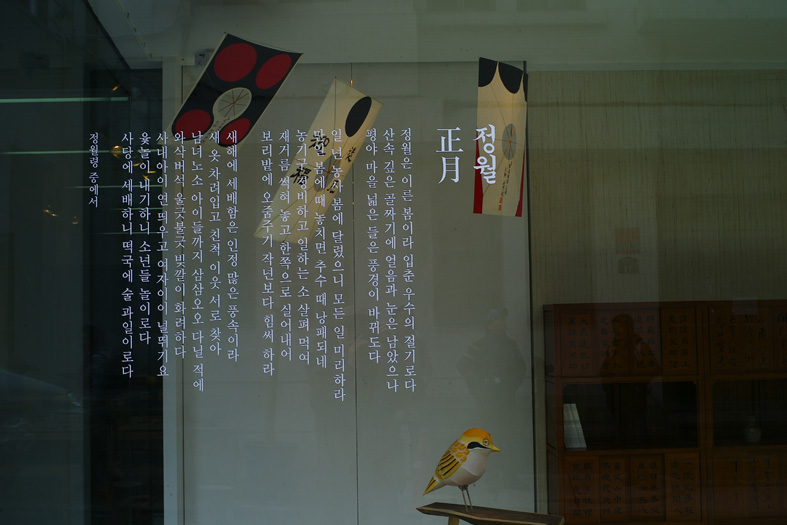 정월
正月
정월은 이른 봄이라 입춘 우수의 절기로다
산속 깊은 골짜기에 얼음과 눈은 남았으나
평야 마을 넓은 들은 풍경이 바뀌도다
일 년 농사 봄에 달렸으니 모든 일 미리하라
만일 봄에 때 놓치면 추수 때 낭패되네
농기구 정비하고 일하는 소 살펴 먹여
재거름 썩혀 놓고 한쪽으로 실어내어
보리밭에 오줌주기 작년보다 힘써 하라
새해에 세배함은 인정 많은 풍속이라
새 옷 차려입고 친척 이웃 서로 찾아
남녀노소 아이들까지 삼삼오오 다닐 적에
와삭버석 울긋불긋 빛깔이 화려하다
사내아이 연 띄우고 여자아이 널뛰기요
윷놀이 내기하니 소년들 놀이로다
사당에 세배하니 떡국에 술 과일이로다
정월령 중에서